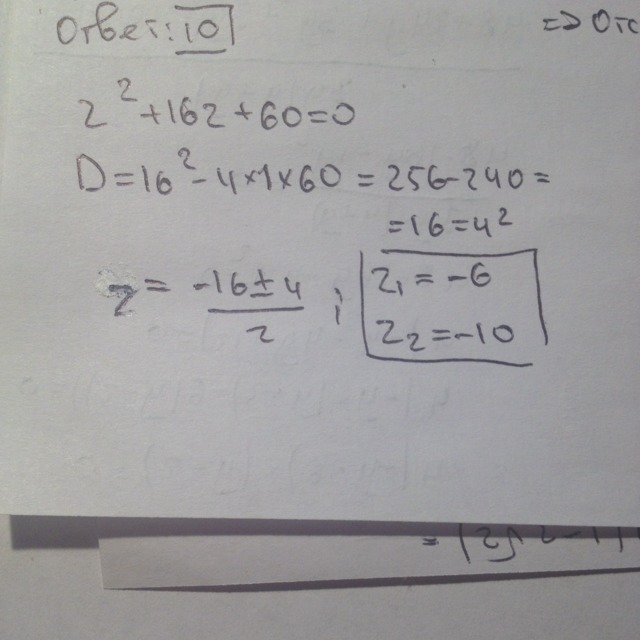 Ответ: 10 => Отс
z² + 16z + 60 = 0
D = 16² - 4×1×60 = 256 - 240 =
= 16 = 4²
z = (-16 ± 4)/2 ; z₁ = -6
z₂ = -10